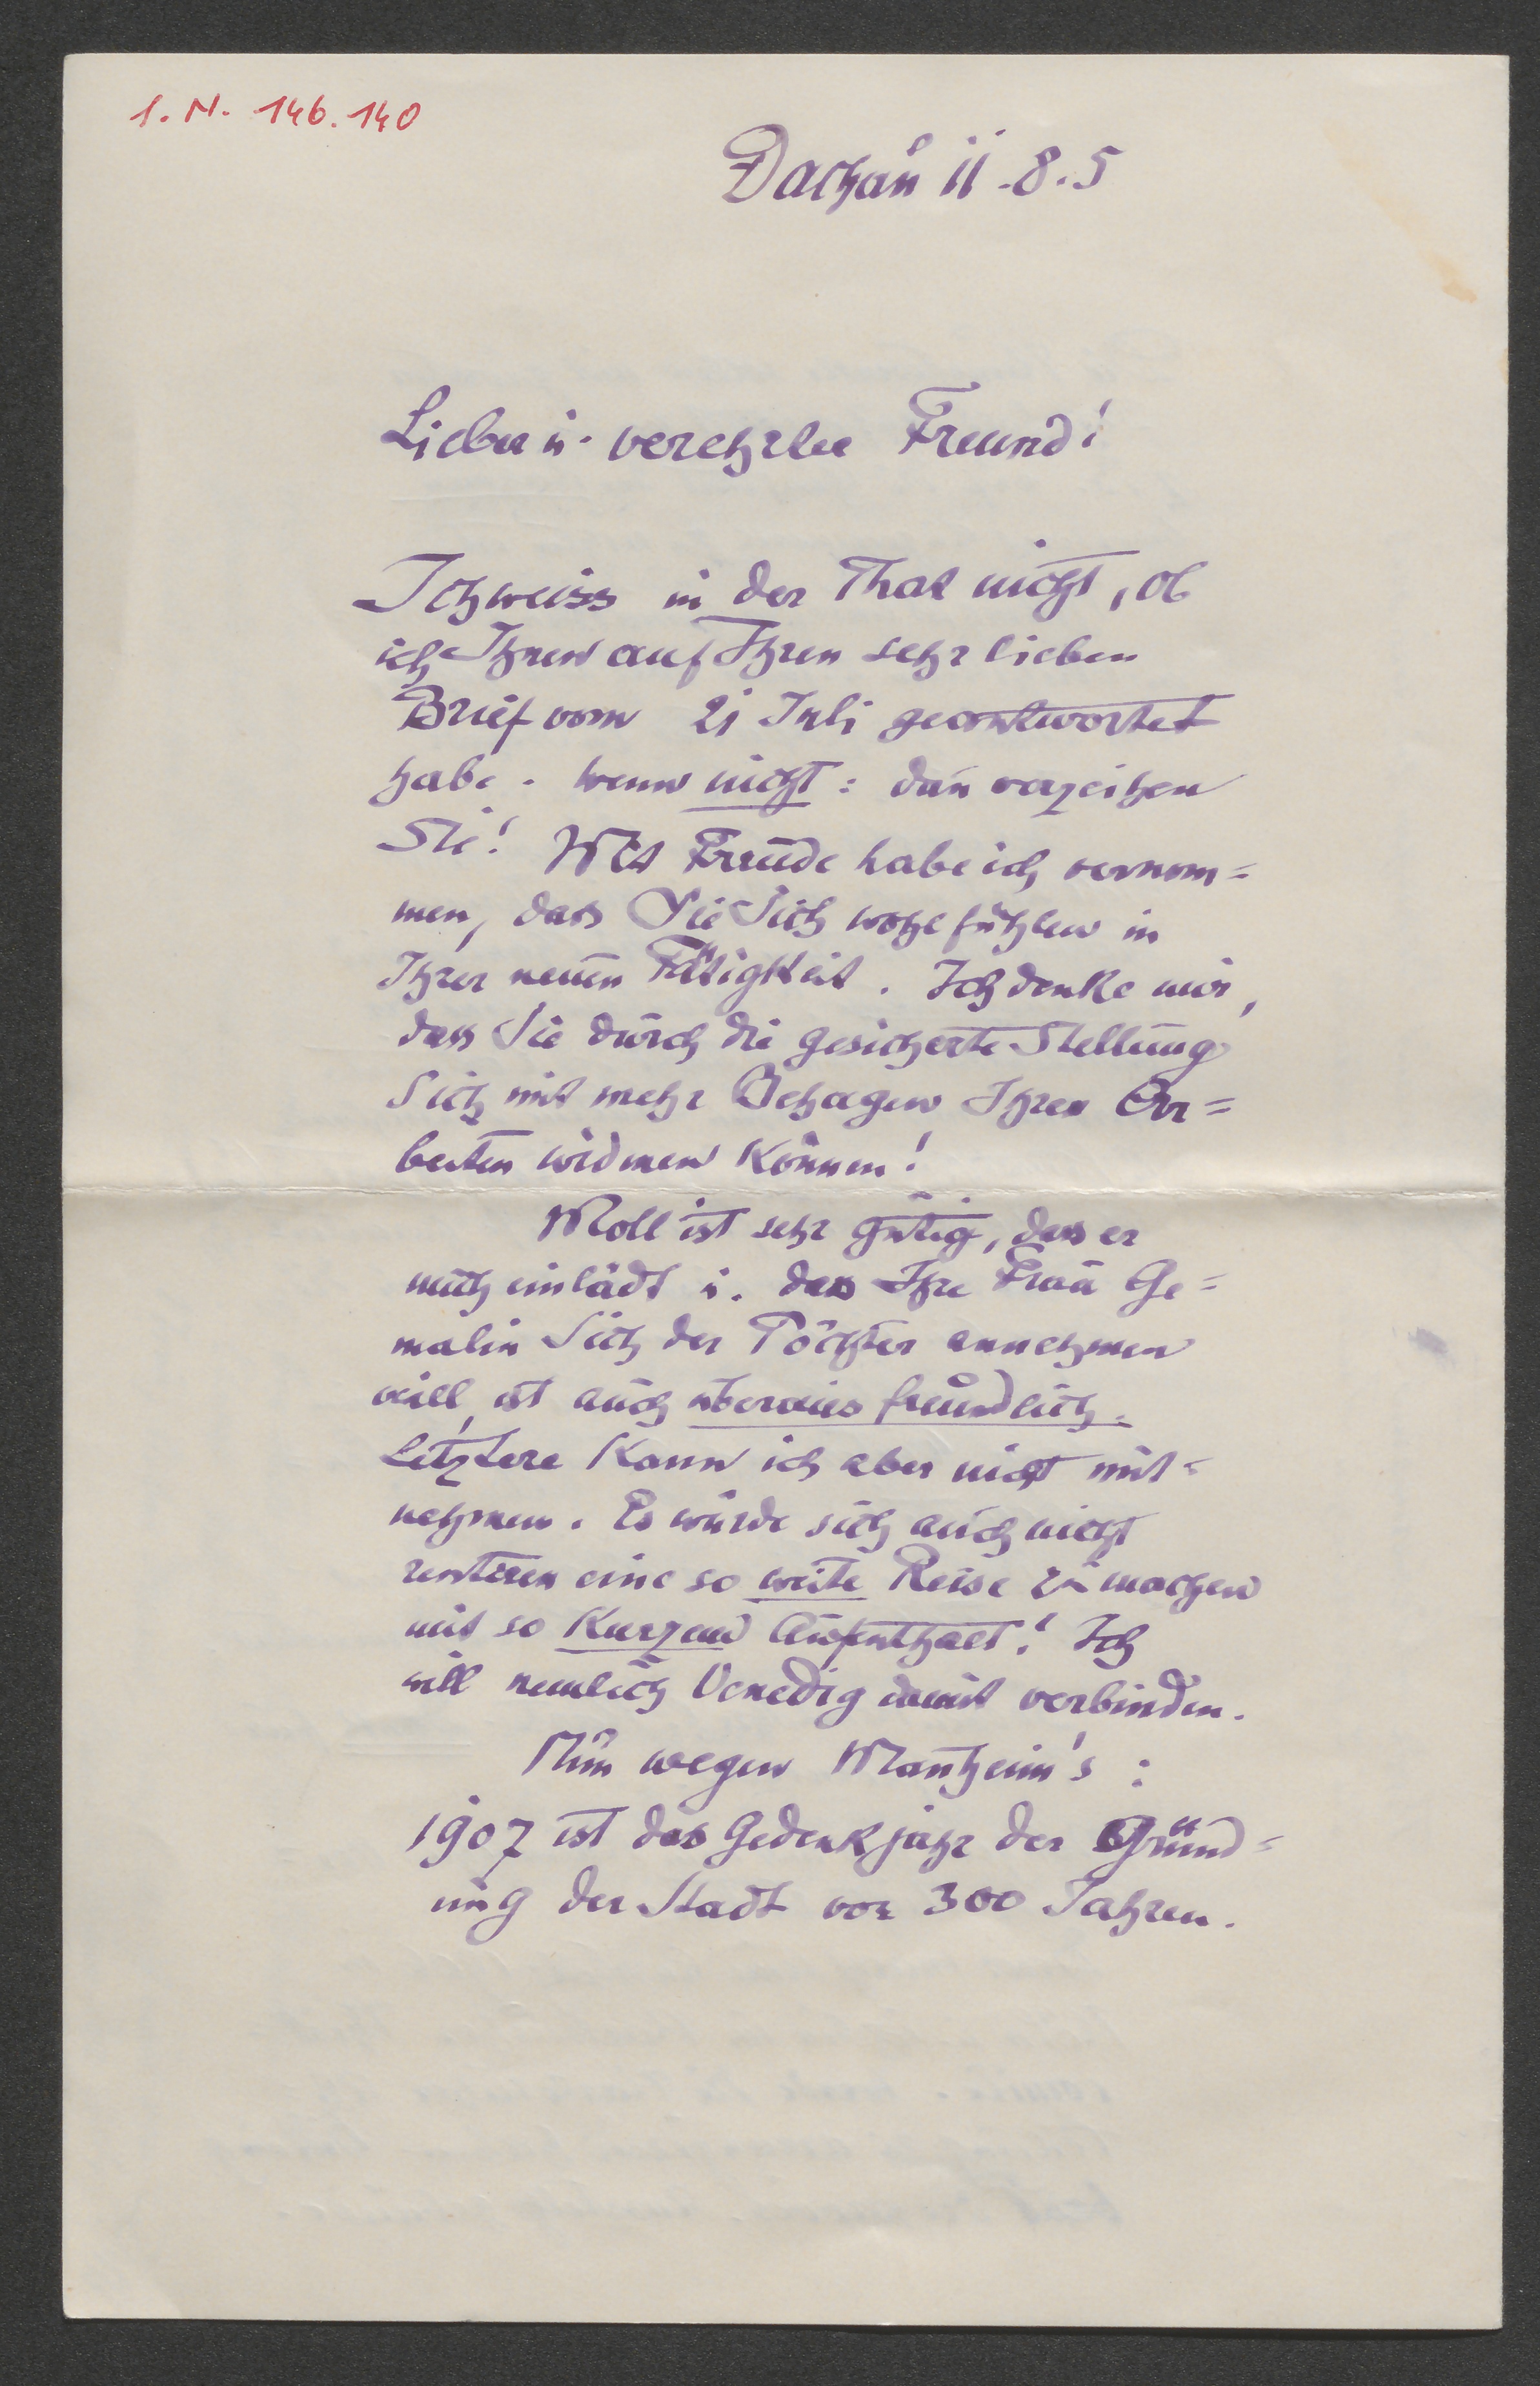 I. N. 146.140
Dachau 11.8.5
Lieber u. verehrter Freund!
Ich weiss in der That nicht, ob
ich Ihnen auf Ihren sehr lieben
Brief vom 21 Juli geantwortet
habe. Wenn nicht: dan̄ verzeihen
Sie! Mit Freude habe ich vernom=
men, dass Sie Sich wohl fühlen in
Ihrer neuen Tätigkeit. Ich denke mir,
dass Sie durch die gesicherte Stellung
Sich mit mehr Behagen Ihren Ar=
beiten widmen können!
Moll ist sehr gütig, dass er
mich einlädt u. dass Ihre Frau Ge=
malin Sich der Töchter annehmen
will, ist auch überaus freundlich.
Letztere kann ich aber nicht mit=
nehmen. Es würde sich auch nicht
rentiren eine so weite Reise zu machen
mit so kurzem Aufenthalt! Ich
will nemlich Venedig damit verbinden.
Nun wegen Man̄heim's:
1907 ist das Gedenkjahr der Gründ=
ung der Stadt vor 300 Jahren.